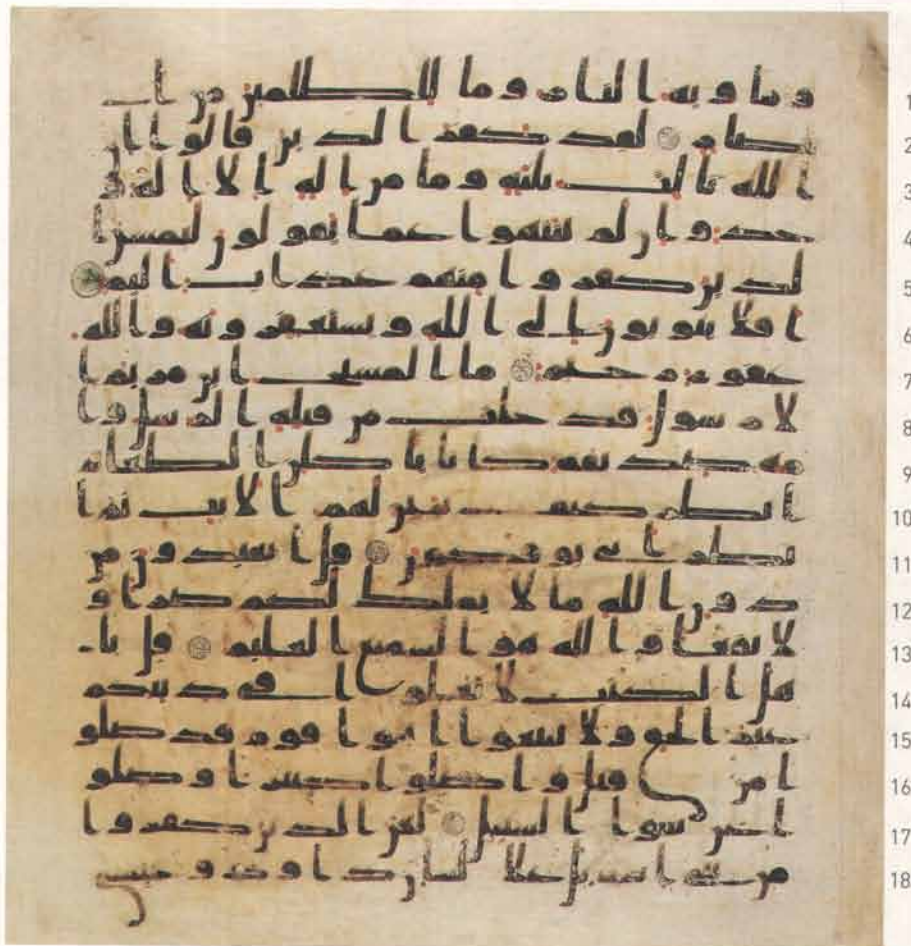 1 وما ويه النار وما للظلمين من ا
2 نصار لقد كفر الذين قالوا ان
3 الله ثالث ثلثة وما من اله الا اله و
4 حد وان لم ينتهوا عما يقولون ليمسن ا
5 لذين كفروا منهم عذاب اليم
6 افلا يتوبون الى الله ويستغفرونه والله
7 غفور رحيم ما المسيح ابن مريم ا
8 لا رسول قد خلت من قبله الرسل وا
9 مه صديقة كانا ياكلن الطعام
10 انظر كيف نبين لهم الايت ثم ا
11 نظر انى يوفكون قل اتعبدون من
12 دون الله ما لا يملك لكم ضرا و
13 لا نفعا والله هو السميع العليم قل يا
14 هل الكتب لا تغلوا في دينكم
15 غير الحق ولا تتبعوا اهوا قوم قد ضلو
16 ا من قبل واضلوا كثيرا وضلو
17 ا عن سوا السبيل لعن الذين كفروا
18 من بني اسريل على لسان داود وعيسى